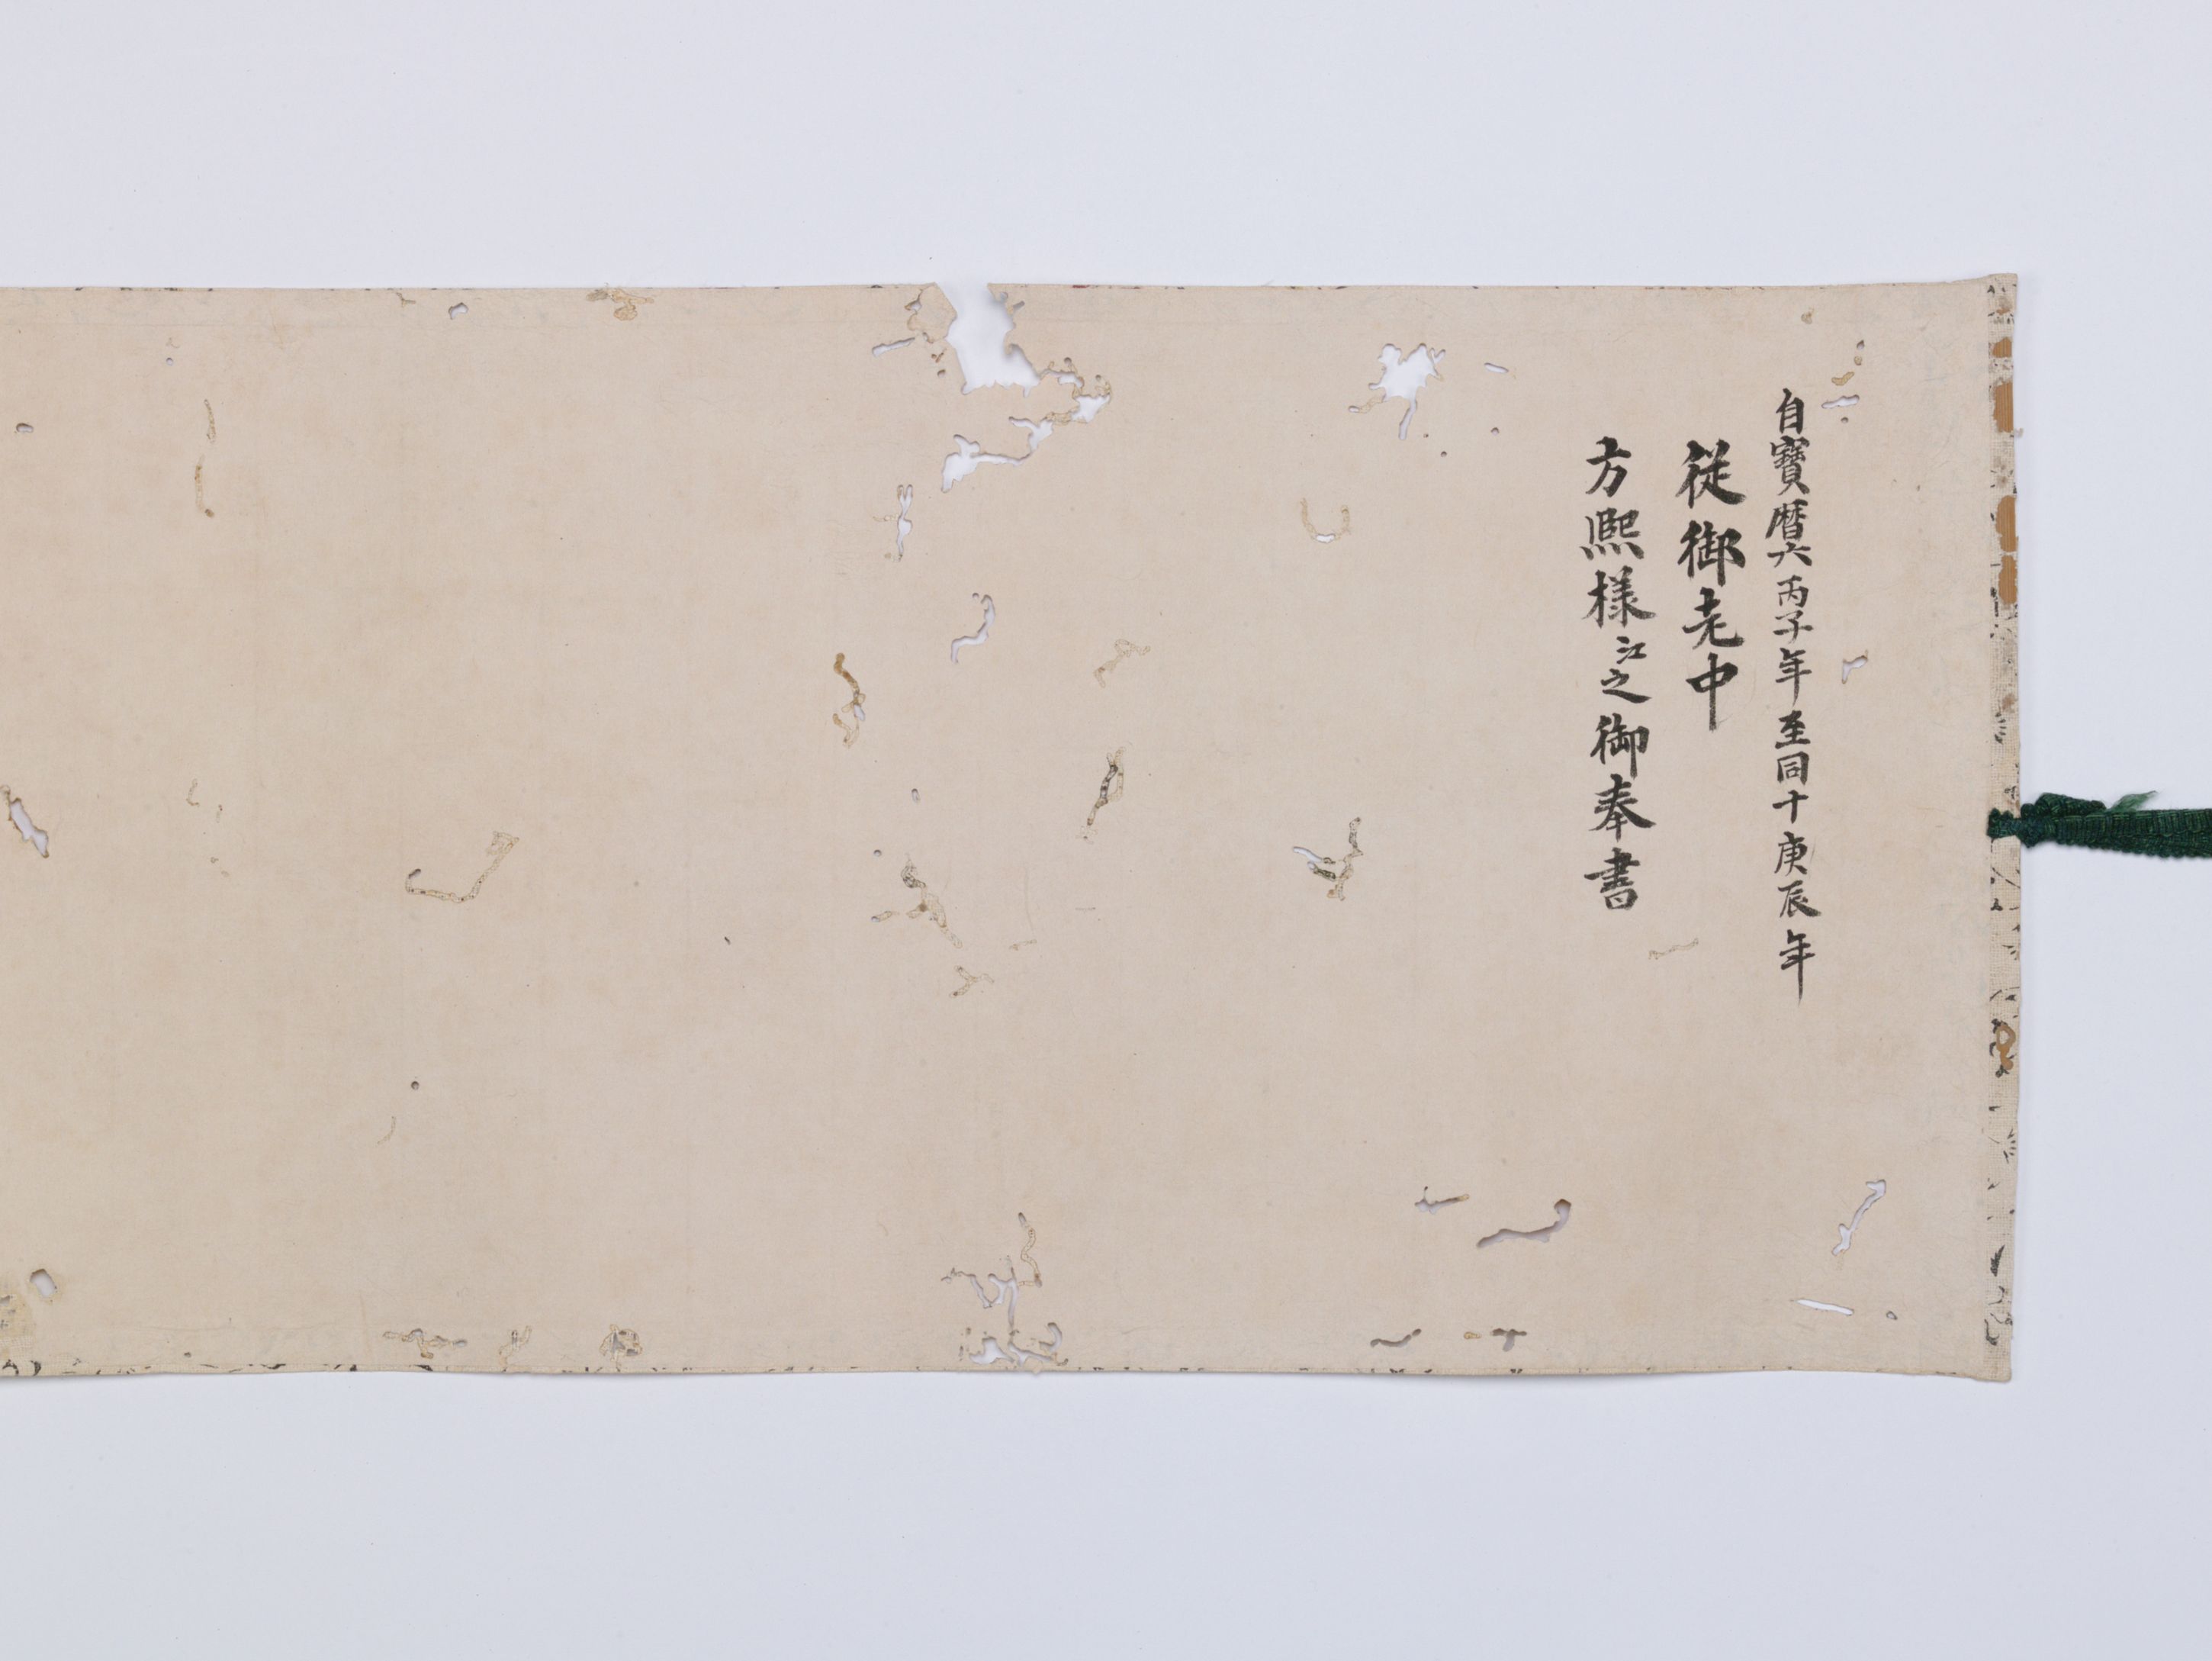 自寶暦六丙子年至同十庚辰年
従御老中
方熈様江之御奉書